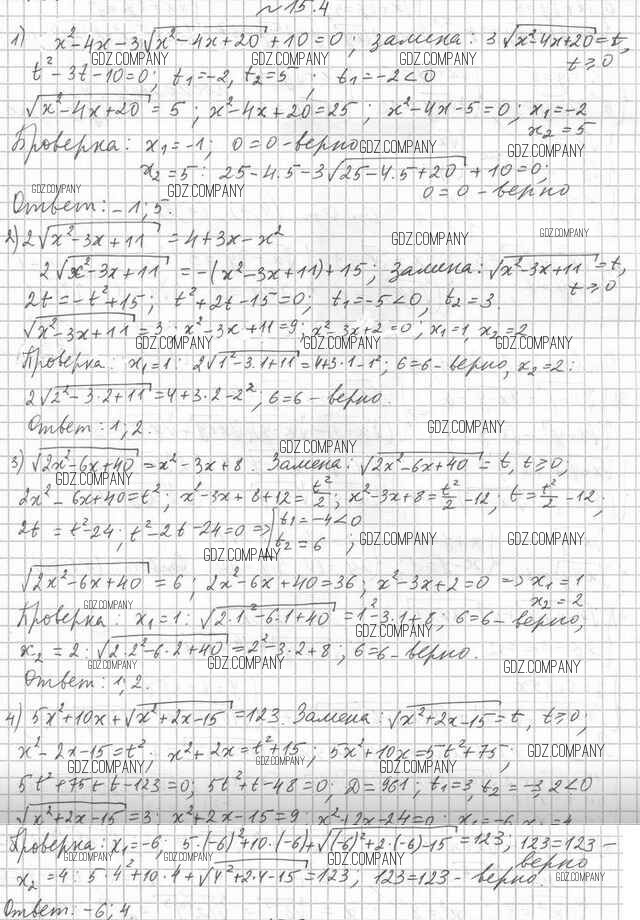 № 15.4
1) x²-4x-3√(x²-4x+20)+10=0; замена: 3√(x²-4x+20)=t,
t²-3t-10=0; t₁=-2, t₂=5; t₁=-2<0 t≥0
√(x²-4x+20)=5; x²-4x+20=25; x²-4x-5=0; x₁=-2
x₂=5
Проверка: x₁=-1; 0=0-верно
x₂=5: 25-4.5-3√(25-4.5+20)+10=0;
0=0-верно
Ответ: -1; 5.
2) 2√(x²-3x+11)=4+3x-x²
2√(x²-3x+11)=-(x²-3x+11)+15; замена: √(x²-3x+11)=t,
2t=-t²+15; t²+2t-15=0; t₁=-5<0, t₂=3. t≥0
√(x²-3x+11)=3; x²-3x+11=9; x²-3x+2=0; x₁=1, x₂=2
Проверка: x₁=1: 2√(1²-3.1+11)=4+3.1-1²; 6=6-верно, x₂=2:
2√(2²-3.2+11)=4+3.2-2²; 6=6-верно.
Ответ: 1; 2.
3) √(2x²-6x+40)=x²-3x+8. Замена: √(2x²-6x+40)=t, t≥0;
2x²-6x+40=t²; x²-3x+8+12=t²/2; x²-3x+8=t²/2-12; t=t²/2-12;
2t=t²-24; t²-2t-24=0 ⇒ [t₁=-4<0
t₂=6;
√(2x²-6x+40)=6; 2x²-6x+40=36; x²-3x+2=0 ⇒ x₁=1
x₂=2
Проверка: x₁=1: √(2.1²-6.1+40)=1²-3.1+8; 6=6-верно;
x₂=2: √(2.2²-6.2+40)=2²-3.2+8; 6=6-верно.
Ответ: 1; 2.
4) 5x²+10x+√(x²+2x-15)=123. Замена: √(x²+2x-15)=t, t≥0;
x²-2x-15=t²; x²+2x=t²+15; 5x²+10x=5t²+75;
5t²+75+t-123=0; 5t²+t-48=0; D=961; t₁=3, t₂=-3,2<0
√(x²+2x-15)=3; x²+2x-15=9; x²+2x-24=0; x₁=-6, x₂=4
Проверка: x₁=-6; 5.(-6)²+10.(-6)+√((-6)²+2.(-6)-15)=123; 123=123-
верно
x₂=4: 5.4²+10.4+√(4²+2.4-15)=123; 123=123-верно.
Ответ: -6; 4.
GDZ.COMPANY